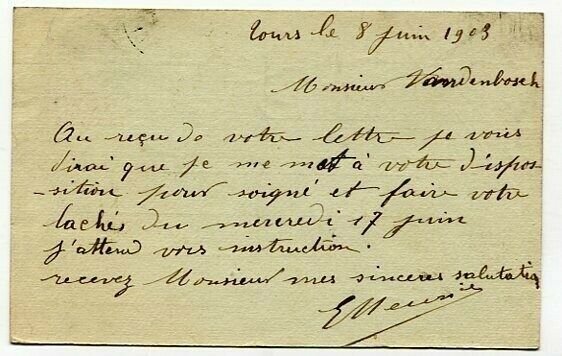 Tours le 8 juin 1903
Monsieur Vandenbosch
Au reçu de votre lettre je vous
dirai que je me met à votre dispos
-sition pour soigné et faire votre
lachés du mercredi 17 juin
j'attend vors instruction.
recevez Monsieur mes sinceres salutation
E Meunier